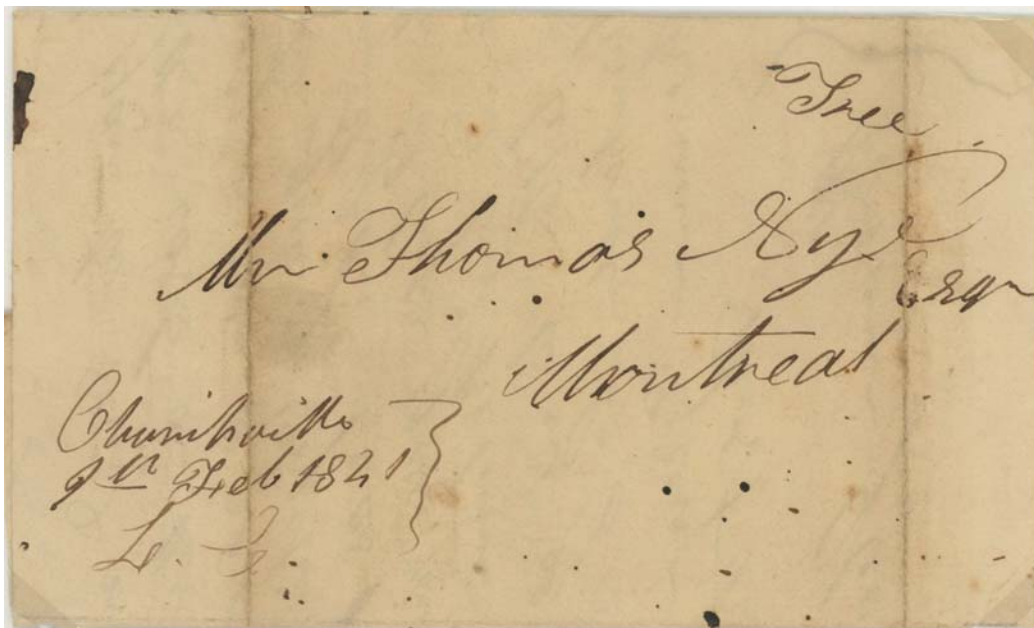 Free
Mr Thomas Nye
Esqr
Montreal
Churchville
9th Feb 1841